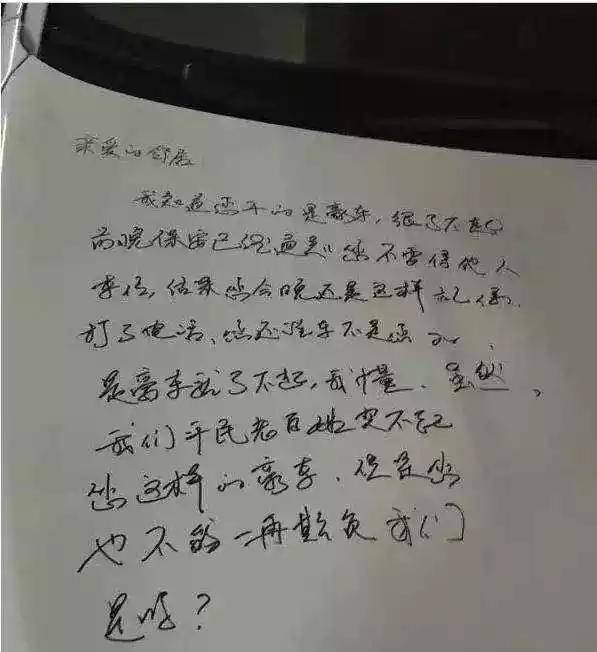 亲爱的邻居
我知道您开的是豪车，很了不起。
前晚保安已经通知您不要停他人
车位，结果您今晚还是这样
打了电话，您还说车不是您
是豪车就了不起，我懂、虽然，
我们平民老百姓买不起
您这样的豪车、但是您
也不能一再欺负我们
是吗？